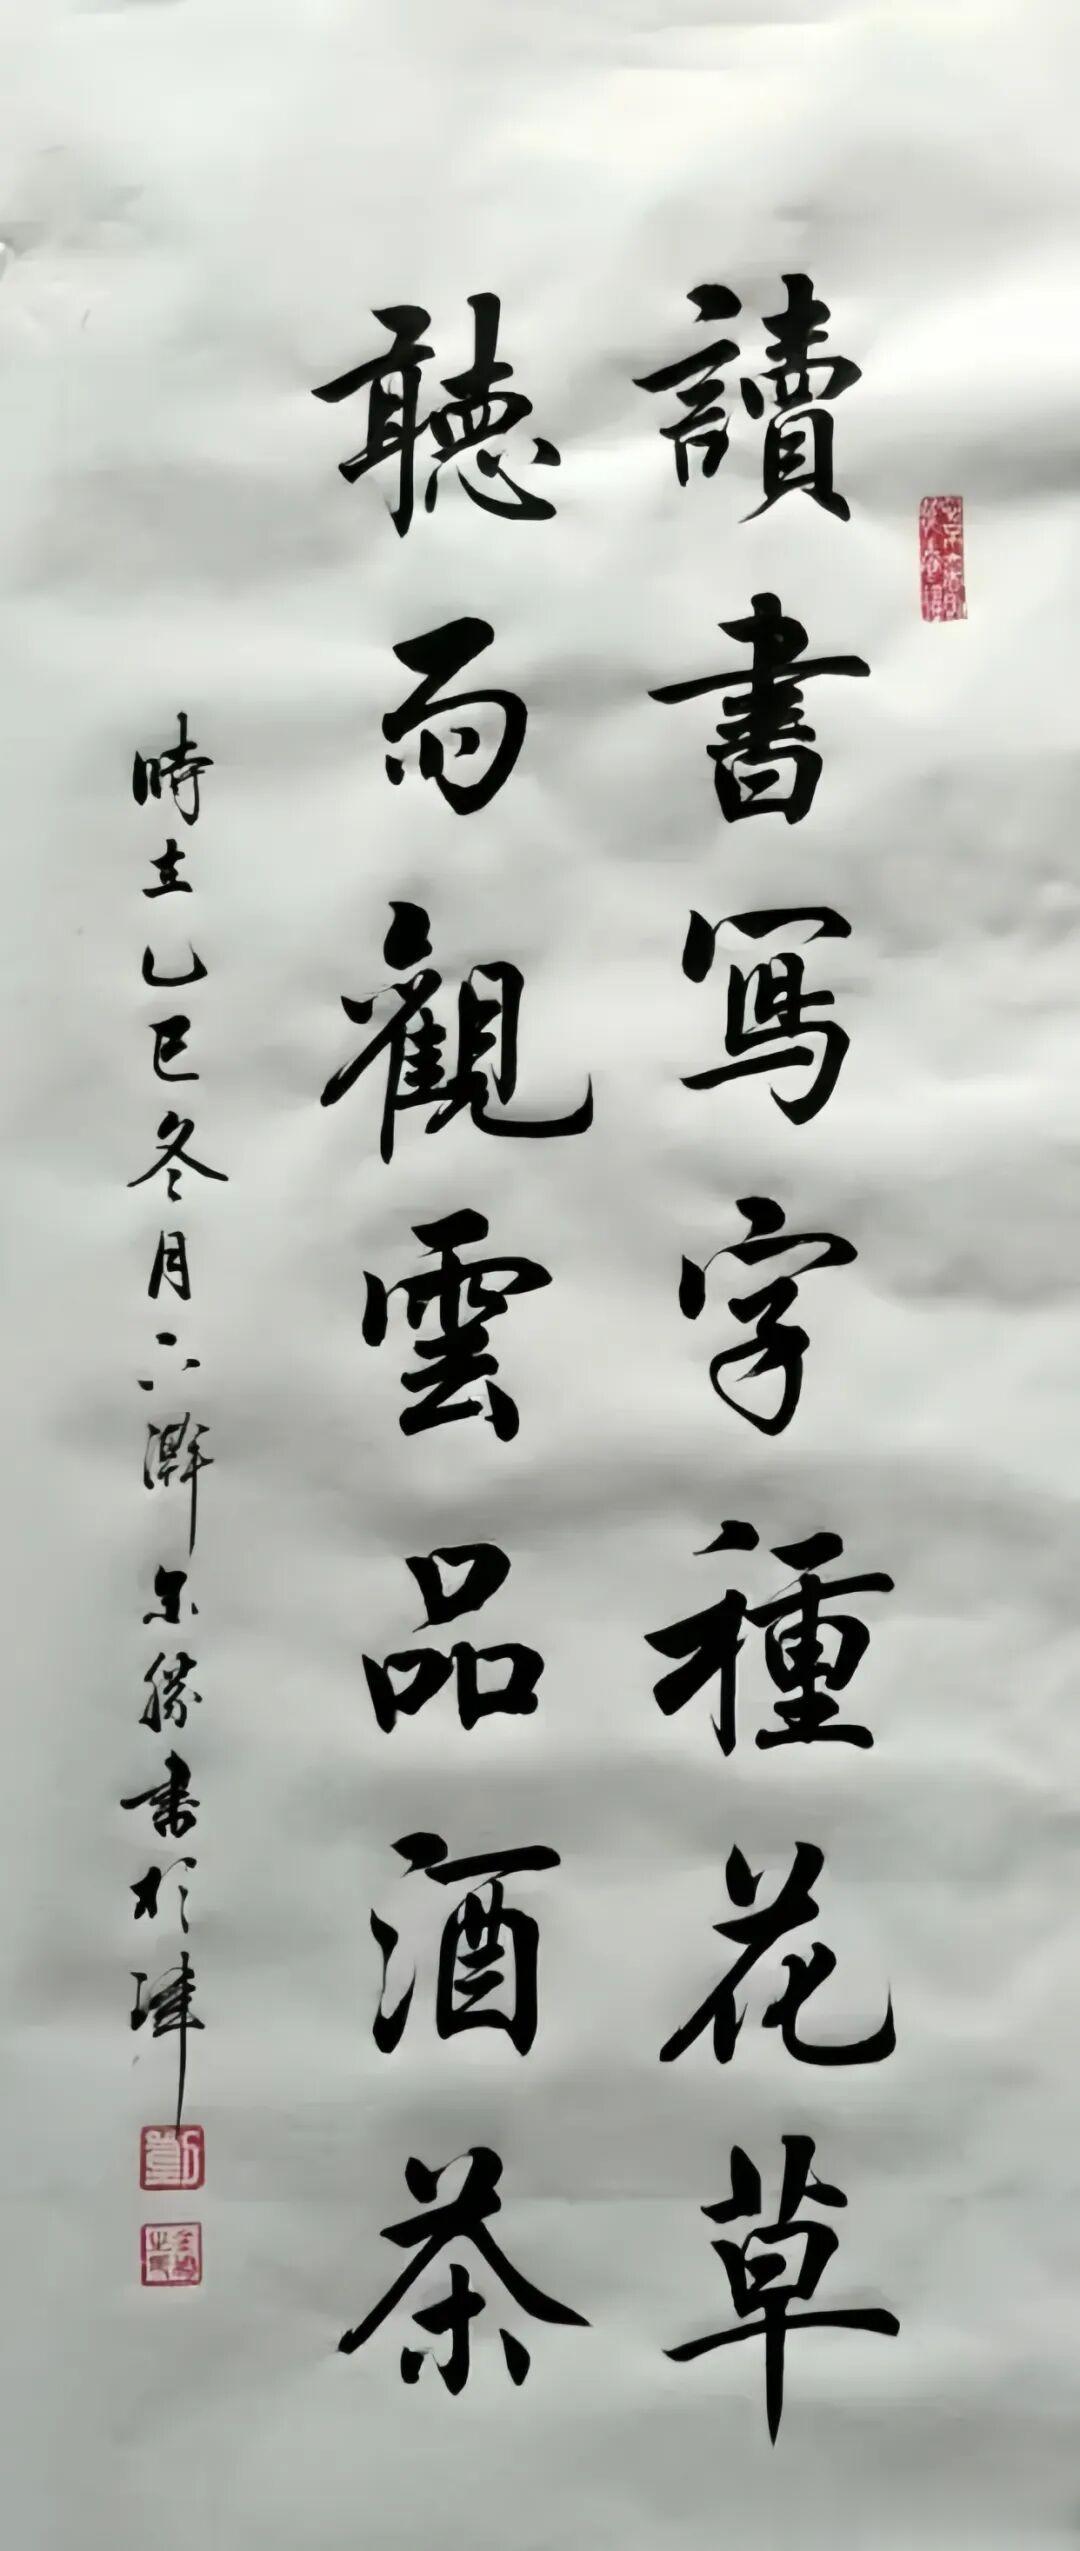 讀書寫字種花草
聽雨觀雲品酒茶
時在乙巳冬月下澣勝書於